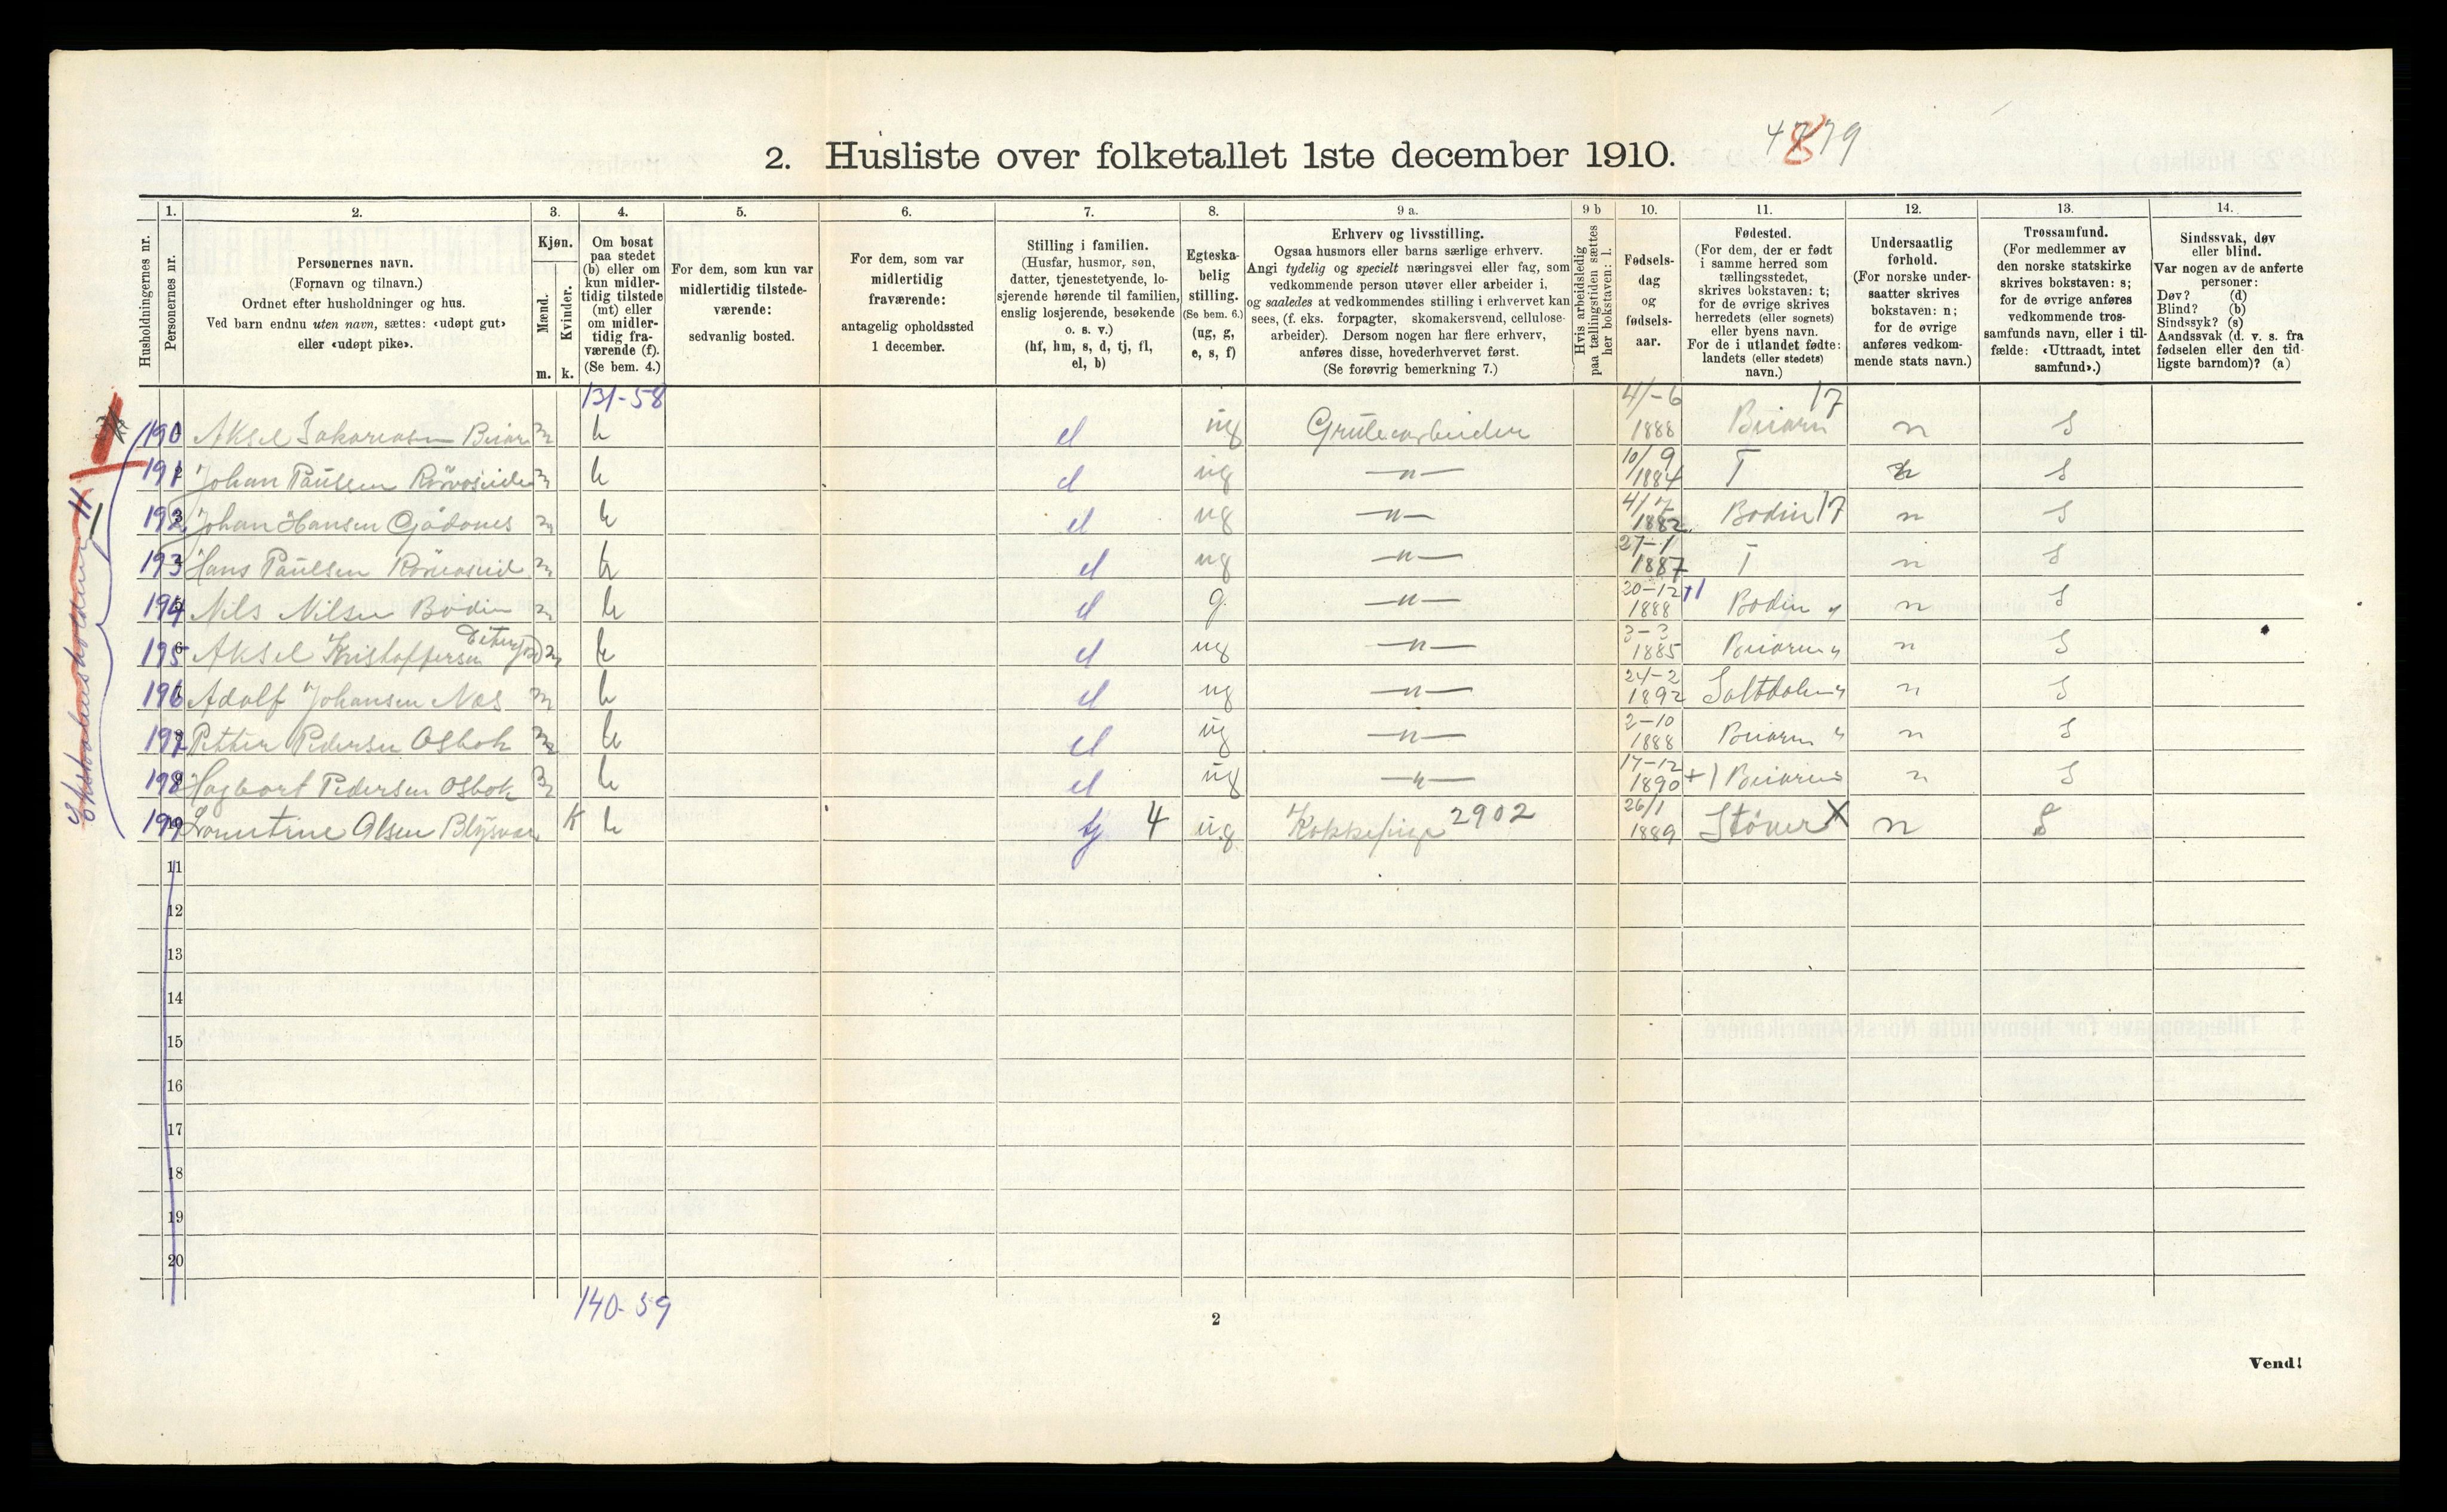 2. Husliste over folketallet 1ste december 1910.
4779
8
Husholdningernes nr.
1. Personernes nr.
2. Personernes navn.
(Fornavn og tilnavn.)
Ordnet efter husholdninger og hus.
Ved barn endnu uten navn, sættes: «udøpt gut»
eller «udøpt pike».
3. Kjøn.
Mænd. m.
Kvinder. k.
4. Om bosat
paa stedet
(b) eller om
kun midler-
tidig tilstede
(mt) eller
om midler-
tidig fra-
værende (f).
(Se bem. 4.)
5. For dem, som kun var
midlertidig tilstede-
værende:
sedvanlig bosted.
6. For dem, som var
midlertidig
fraværende:
antagelig opholdssted
1 december.
7. Stilling i familien.
(Husfar, husmor, søn,
datter, tjenestetyende, lo-
sjerende hørende til familien,
enslig losjerende, besøkende
o. s. v.)
(hf, hm, s, d, tj, fl,
el, b)
8. Egteska-
belig
stilling.
(Se bem. 6.)
(ug, g,
e, s, f)
9 a. Erhverv og livsstilling.
Ogsaa husmors eller barns særlige erhverv.
Angi tydelig og specielt næringsvei eller fag, som
vedkommende person utøver eller arbeider i,
og saaledes at vedkommendes stilling i erhvervet kan
sees, (f. eks. forpagter, skomakersvend, cellulose-
arbeider). Dersom nogen har flere erhverv,
anføres disse, hovederhvervet først.
(Se forøvrig bemerkning 7.)
9 b Hvis arbeidsledig
paa tællingstiden sættes
her bokstaven: l.
10. Fødsels-
dag
og
fødsels-
aar.
11. Fødested.
(For dem, der er født
i samme herred som
tællingsstedet,
skrives bokstaven: t;
for de øvrige skrives
herredets (eller sognets)
eller byens navn.
For de i utlandet fødte:
landets (eller stedets)
navn.)
12. Undersaatlig
forhold.
(For norske under-
saatter skrives
bokstaven: n;
for de øvrige
anføres vedkom-
mende stats navn.)
13. Trossamfund.
(For medlemmer av
den norske statskirke
skrives bokstaven: s;
for de øvrige anføres
vedkommende tros-
samfunds navn, eller i til-
fælde: «Uttraadt, intet
samfund».)
14. Sindssvak, døv
eller blind.
Var nogen av de anførte
personer:
Døv? (d)
Blind? (b)
Sindssyk? (s)
Aandssvak (d. v. s. fra
fødselen eller den tid-
ligste barndom)? (a)
131-58
190 1 Aksel Sakariasen Beiarn m b el ug Grubearbeider 4/-6 1888 Beiarn 17 n S
191 2 Johan Paulsen m b el ug —"— 10/9 1884 T n S
192 3 Johan Hansen m b el ug —"— 4/7 1882 Bodin 17 n S
193 4 Hans Paulsen m b el ug —"— 27-1 1887 T n S
194 5 Nils Nilsen Bodin m b el g —"— 20-12 1888 +1 Bodin " n S
195 6 Aksel Kristoffersen m b el ug —"— 3-3 1885 Beiarn " n S
196 7 Adolf Johansen Næs m b el ug —"— 24-2 1892 Saltdalen " n S
197 8 Petter Pedersen Osbak m b el ug —"— 2-10 1888 Beiarn " n S
198 9 Hagbart Pedersen Osbak m b el ug —"— 17-12 1890 +1 Beiarn " n S
199 10 Olsen K b tj 4 ug Kokkepige 2902 26/1 1889 Støver X n S
11
12
13
14
15
16
17
18
19
20
140-59
2
Vend!